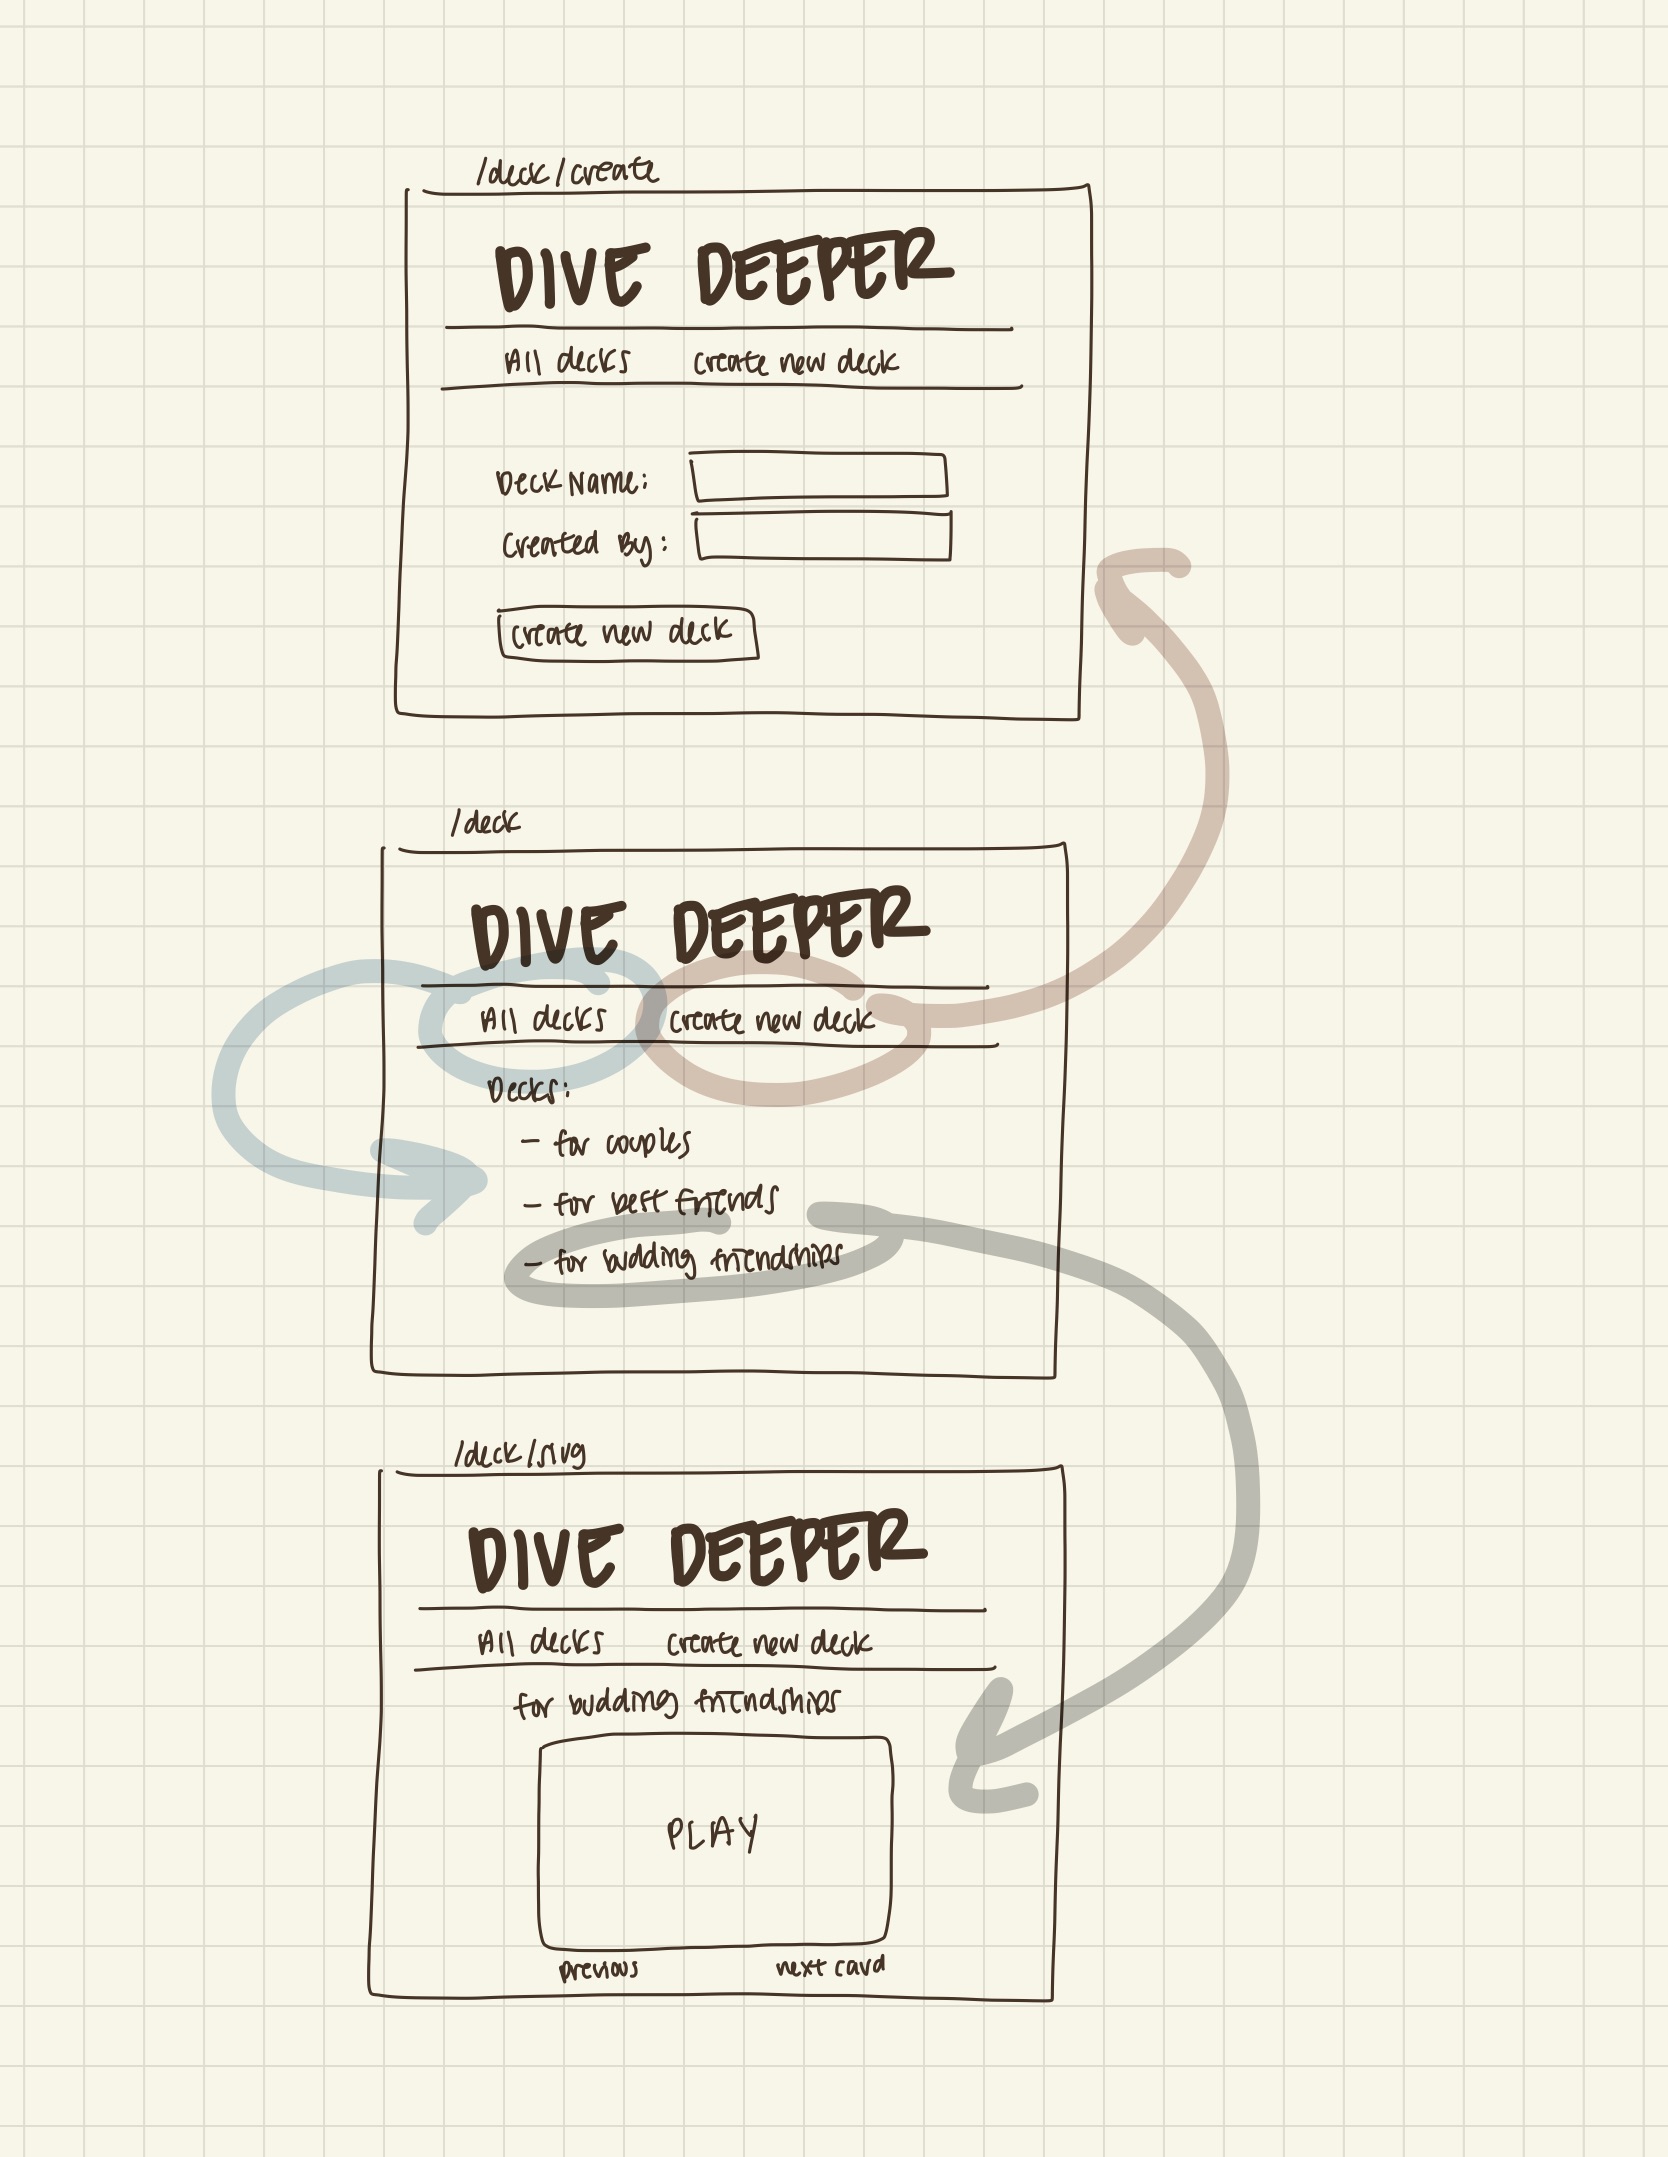 /deck/create
DIVE DEEPER
All decks create new deck
Deck Name:
Created By:
create new deck
/deck
DIVE DEEPER
All decks create new deck
Decks:
- for couples
- for best friends
- for budding friendships
/deck/slug
DIVE DEEPER
All decks create new deck
for budding friendships
PLAY
previous next card